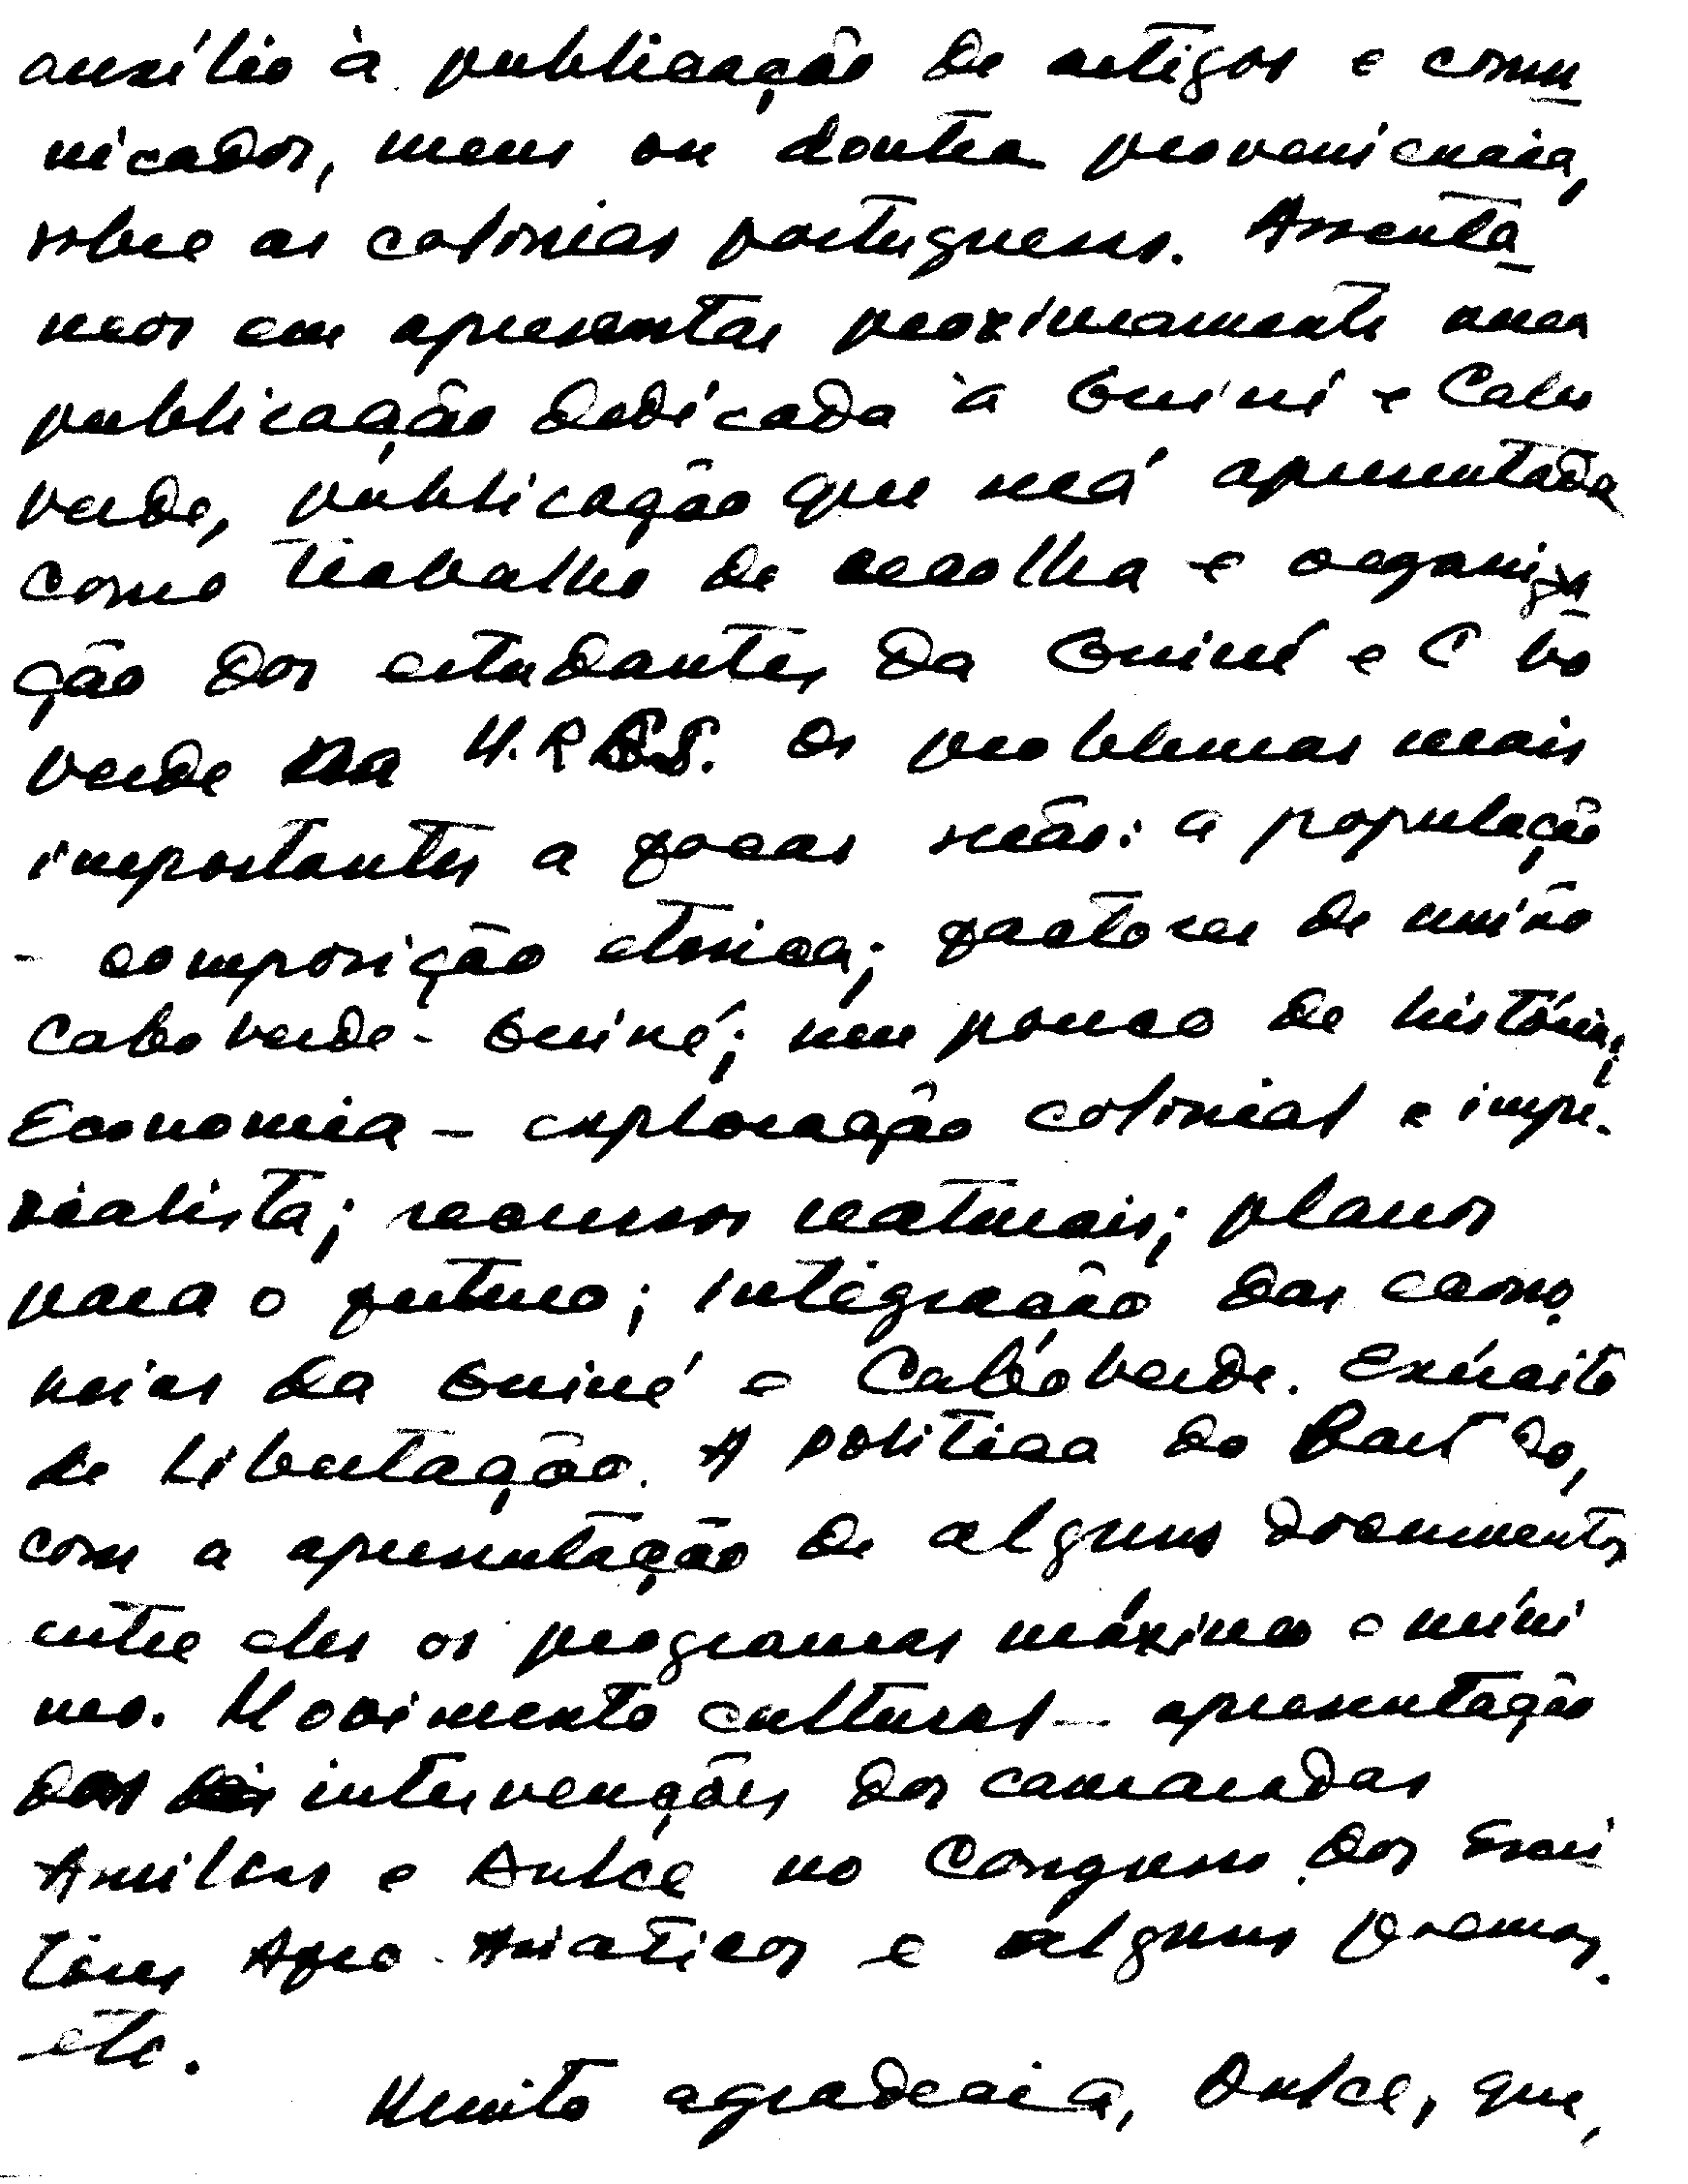 auxílio à publicação de artigos e comu
nicados, meus ou doutra proveniencia,
sobre as colonias portuguesas. Assentá
mos em apresentar proximamente uma
publicação dedicada à Guiné e Cabo
verde, publicação que será apresentada
como trabalho de recolha e organiza
ção dos estudantes da Guiné e C bo
verde na U.R.S.S. Os problemas mais
importantes a focar serão: a população
- composição etnica; factores de união
Cabo verde - Guiné; um pouco de história;
Economia - exploração colonial e impe-
rialista; recursos naturais; planos
para o futuro; integração das econo.
mias da Guiné e Cabo verde. Exército
de Libertação. A politica do Part do,
com a apresentação de alguns documentos
entre eles os programas máximo e míni
mo. Movimento cultural - apresentação
das intervenções dos camaradas
Amilcar e Dulce no Congresso dos Escri
tores Afro-Asiaticos e alguns poemas.
etc.
Muito agradecia, Dulce, que,